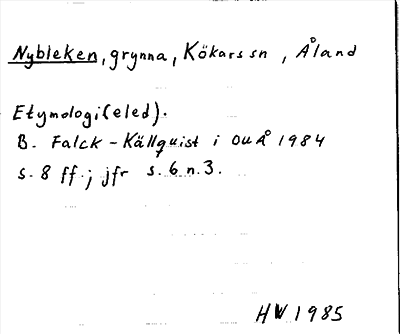 Nybleken, grynna, Kökars sn, Åland
Etymologi(eled).
B. Falck-Källquist i OUÅ 1984
s. 8 ff.; jfr s. 6 n. 3.
HW 1985